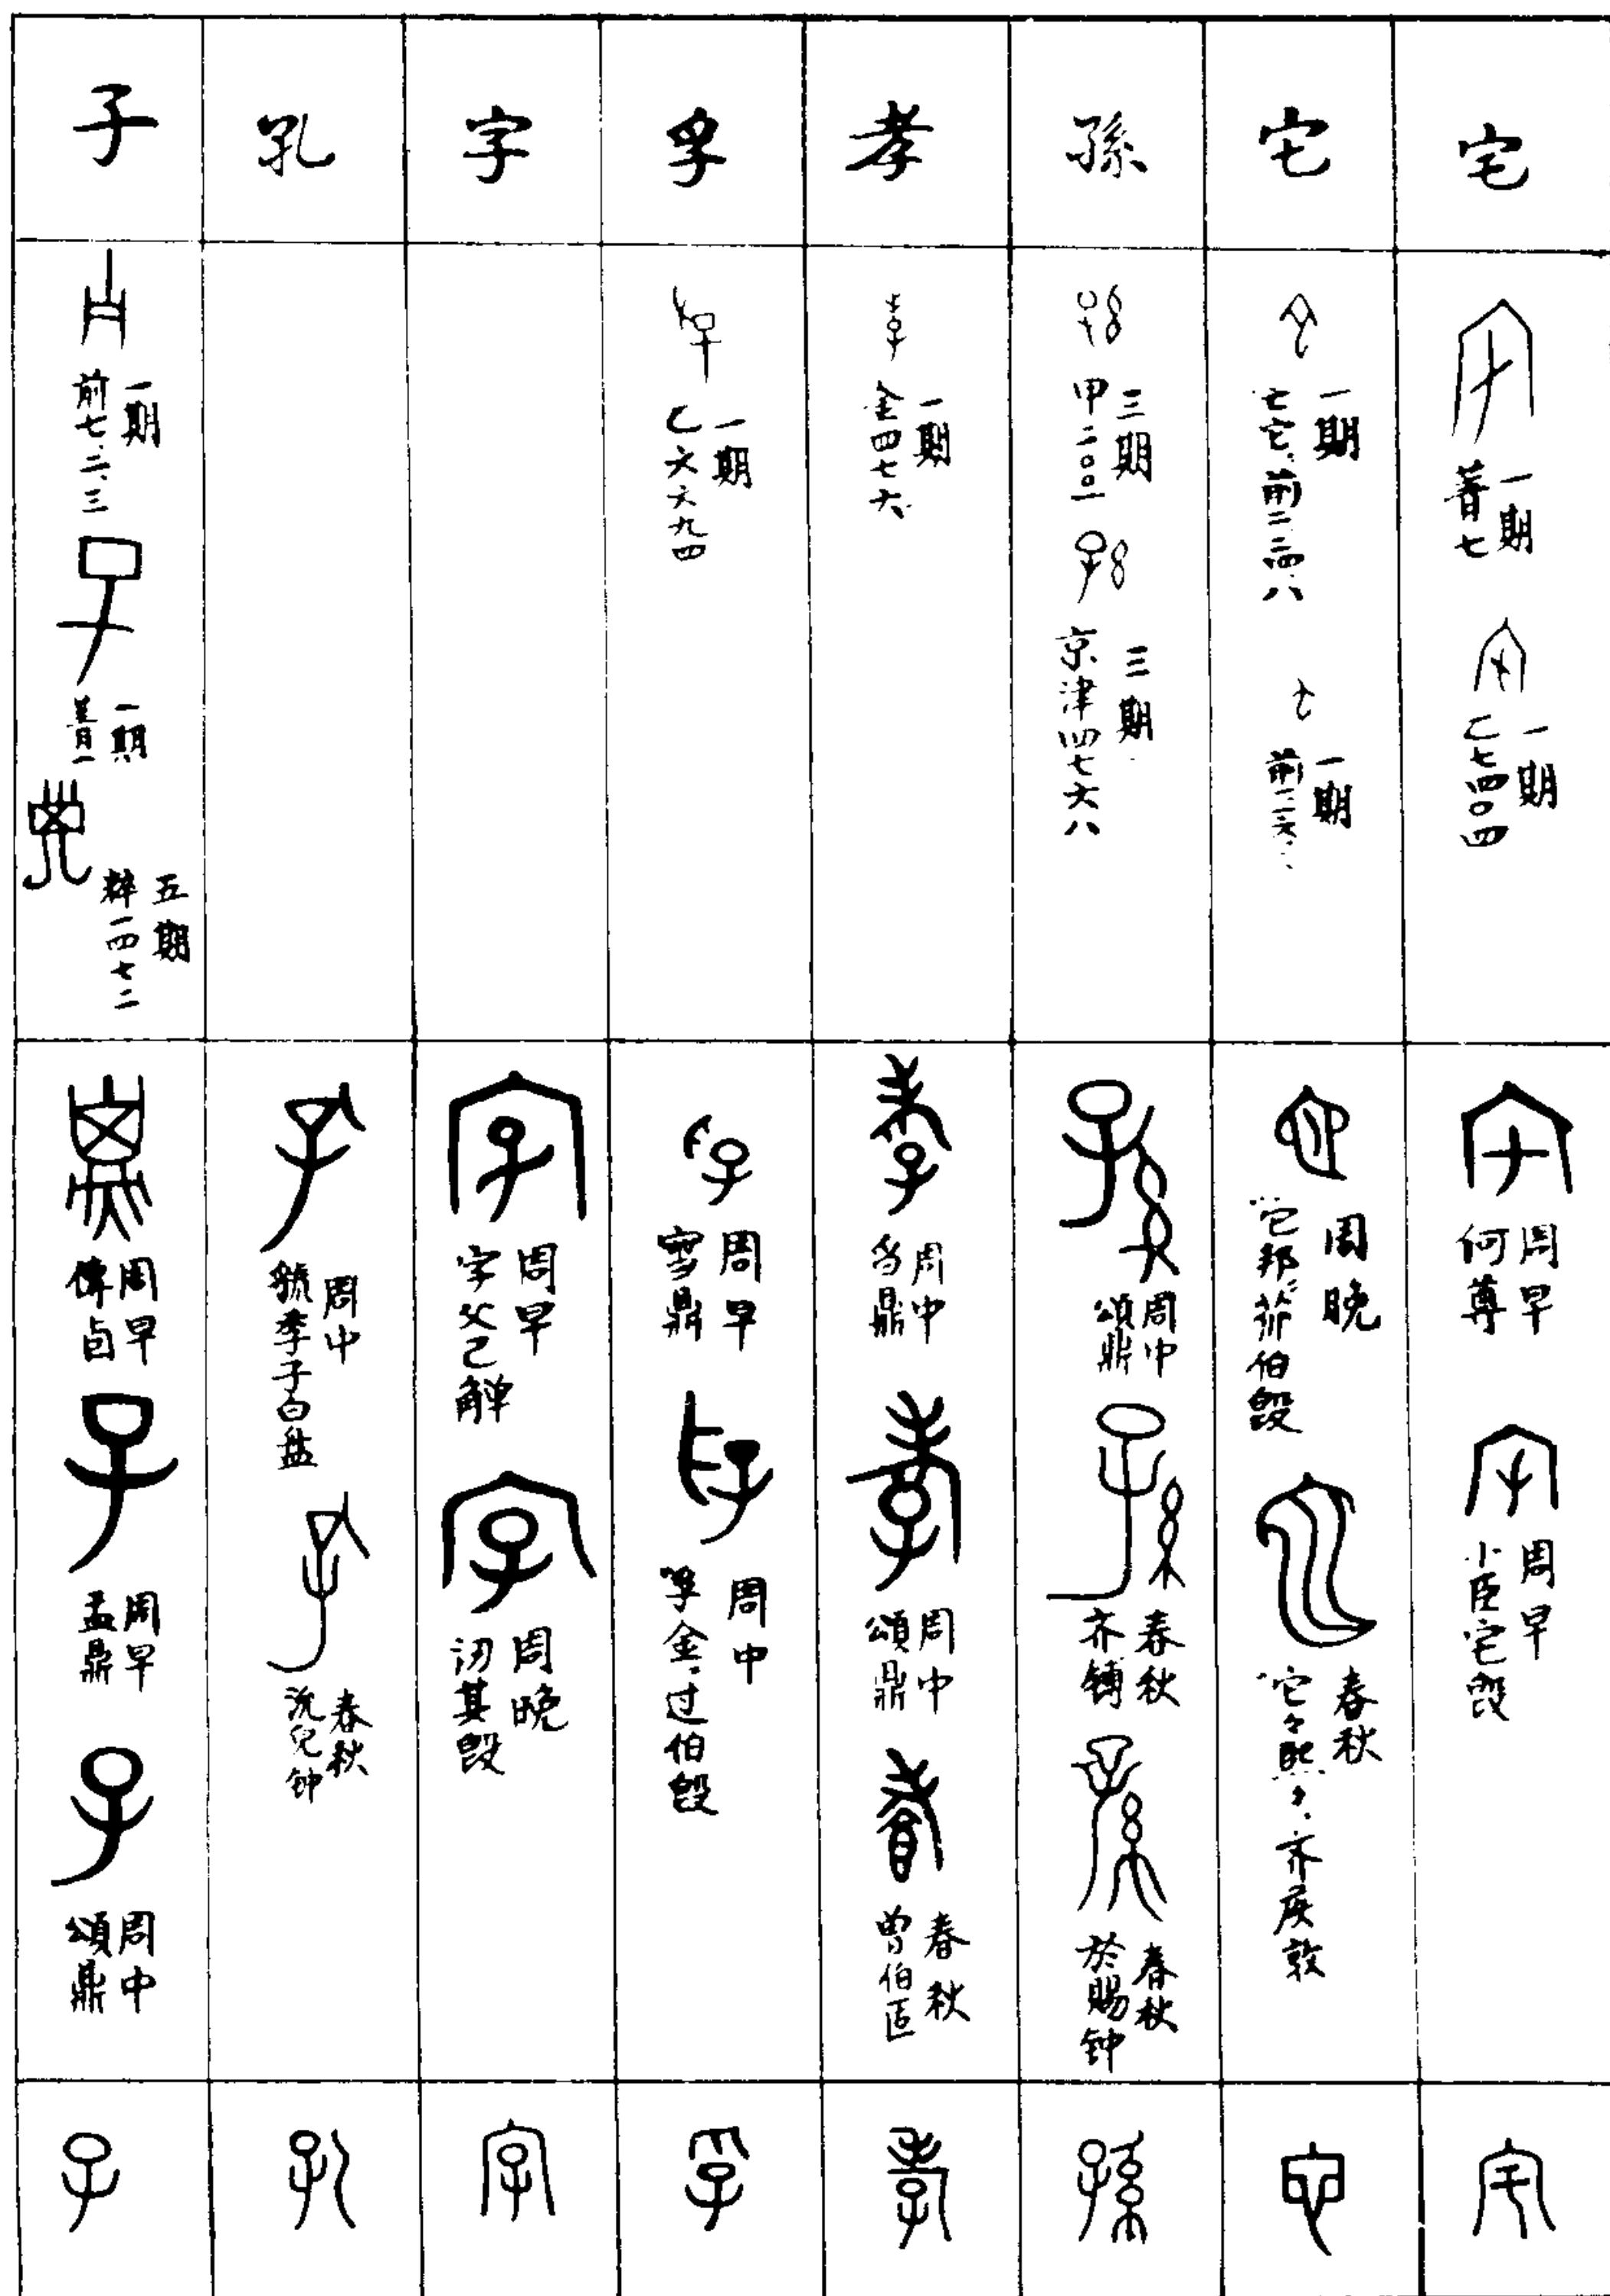 子 孔 字 孚 孝 孫 它 宅
一期
前七.二.三
一期
菁一
五期
粹一四七二
一期
乙六六九四
一期
金四七六
三期
甲二〇〇一
三期
京津四七六八
一期
一期
一期
菁七
一期
乙七四〇四
周早
傳卣
周早
盂鼎
周中
頌鼎
周中
虢季子白盘
春秋
沇兒钟
周早
字父己觶
周晚
其𣪘
周早
鼎
周中
孚金.过伯𣪘
周中
鼎
周中
頌鼎
春秋
曾伯
周中
頌鼎
春秋
齐镈
春秋
於賜钟
周晚
它邦.伯𣪘
春秋
它々熙々.齐侯敦
周早
何尊
周早
小臣宅𣪘
子 孔 字 孚 孝 孫 它 宅